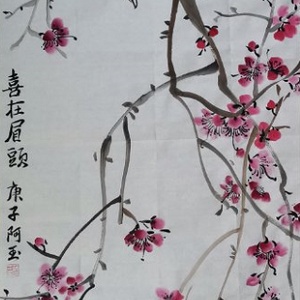 喜在眉頭 庚子阿玉